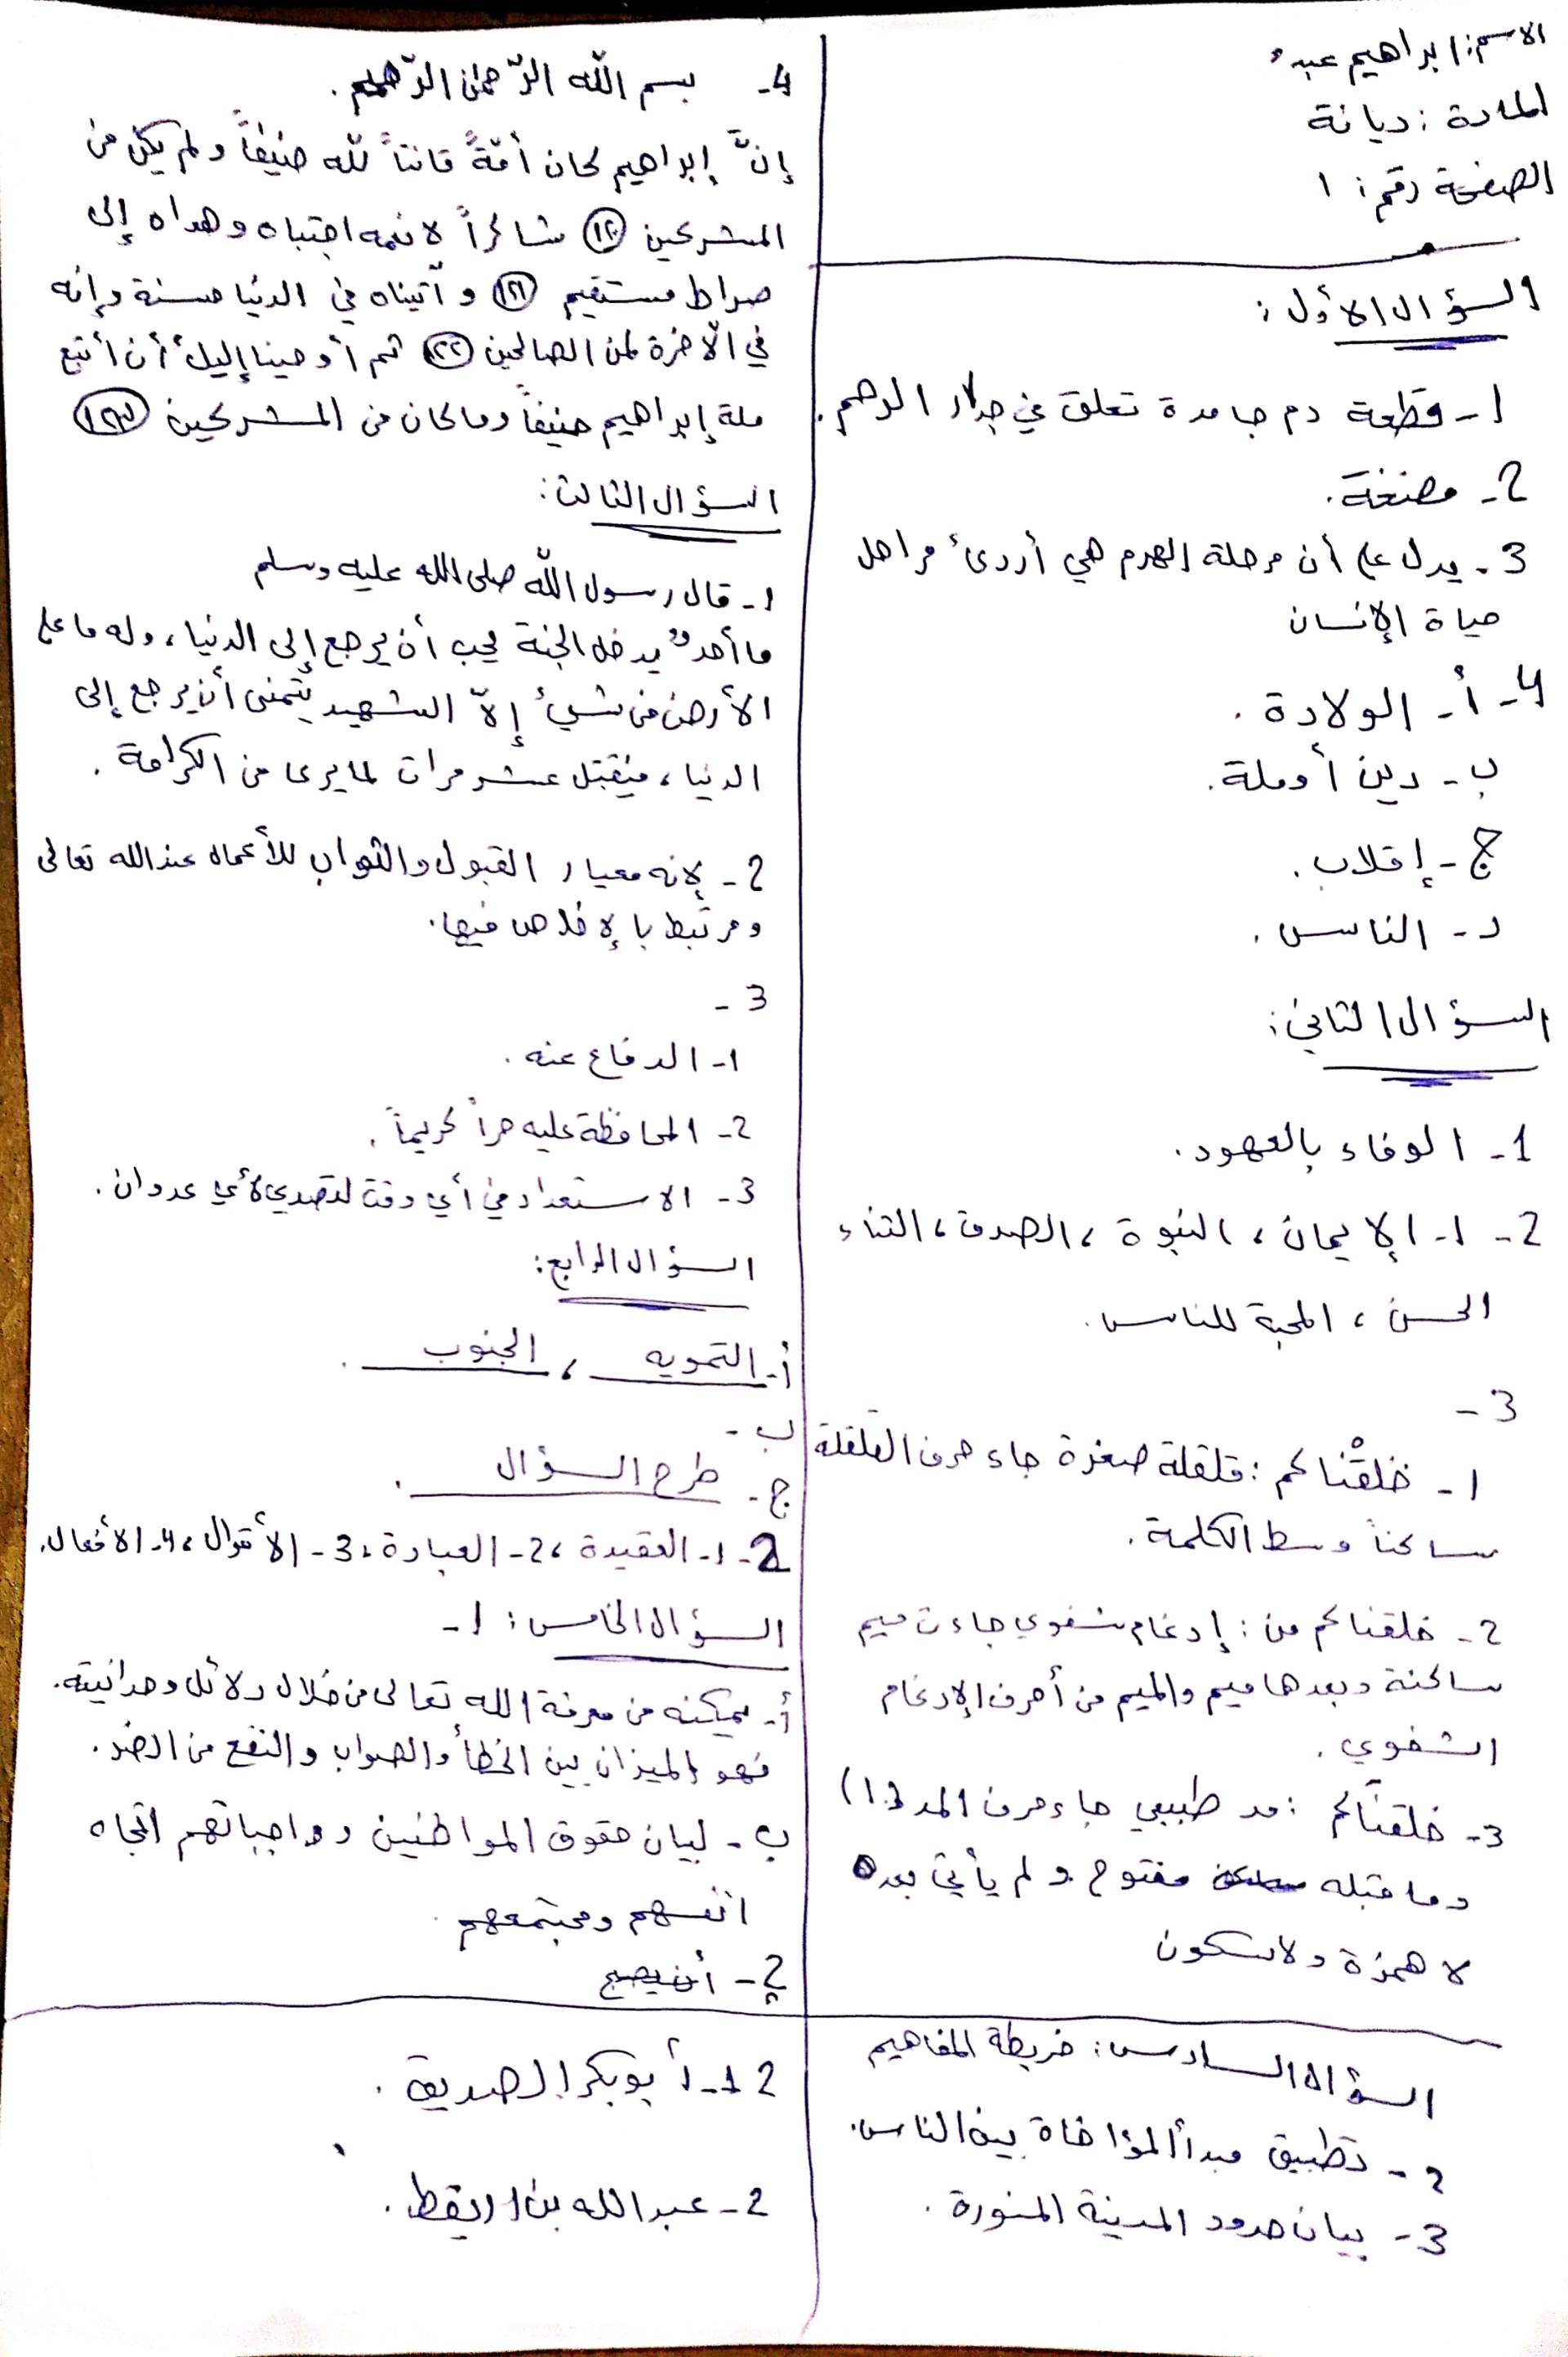 الاسم: ابراهيم عبده
المادة: ديانة
الصفحة رقم: ١
السؤال الأول:
1- قطعة دم جامدة تعلق في جدار الرحم.
2- مضغة.
3- يدل على أن مرحلة الهرم هي أردئ مراحل
حياة الإنسان
4- أ- الولادة.
ب- دين أو ملة.
ج- إقلاب.
د- الناس.
السؤال الثاني:
1- الوفاء بالعهود.
2- 1- الإيمان، النبوة، الصدق، الثناء
الحسن، المحبة للناس.
3-
1- خلقْناكم: قلقلة صغرة جاء حرف القلقلة
ساكناً وسط الكلمة.
2- خلقناكم من: إدغام شفوي جاءت ميم
ساكنة وبعدها ميم والميم من أحرف الإدغام
الشفوي.
3- خلقناكم: مد طبيعي جاء حرف المد (ا)
وما قبله مفتوح ولم يأتي بعده
لا همزة ولا سكون
4- بسم الله الرّحمان الرّحيم.
إنّ إبراهيم كان أمّةً قانتاً لله حنيفاً ولم يكن من
المشركين ١٢٠ شاكراً لانعمه اجتباه وهداه إلى
صراط مستقيم ١٢١ وآتيناه في الدنيا حسنة وإنه
في الآخرة لمن الصالحين ١٢٢ ثم أوحينا إليك أن أتبع
ملة إبراهيم حنيفاً وما كان من المشركين ١٢٣
السؤال الثالث:
1- قال رسول الله صلى الله عليه وسلم
ما أحدٌ يدخل الجنة يحب أن يرجع إلى الدنيا، وله ما على
الأرض من شيءٍ إلّا الشهيد يتمنى أن يرجع إلى
الدنيا، فيقتل عشر مرات لما يرى من الكرامة.
2- لإنه معيار القبول والثواب للأعمال عند الله تعالى
ومرتبط بالإخلاص فيها.
3-
1- الدفاع عنه.
2- المحافظة عليه حراً كريماً.
3- الاستعداد في أي وقت لتصدي لأي عدوان.
السؤال الرابع:
أ- التمويه، الجنوب.
ب-
ج- طرح السؤال.
2- 1- العقيدة، 2- العبادة، 3- الأقوال، 4- الأفعال.
السؤال الخامس: 1-
أ- يمكنه من معرفة الله تعالى من خلال دلائل وحدانيته.
فهو الميزان بين الخطأ والصواب والنفع من الضر.
ب- لبيان حقوق المواطنين وواجباتهم اتجاه
انفسهم ومجتمعهم.
2- أن يصبح
السؤال السادس: خريطة المفاهيم
2- تطبيق مبدأ المؤاخاة بين الناس.
3- بيان حدود المدينة المنورة.
2 1- أبو بكر الصديق.
2- عبد الله بن اريقط.